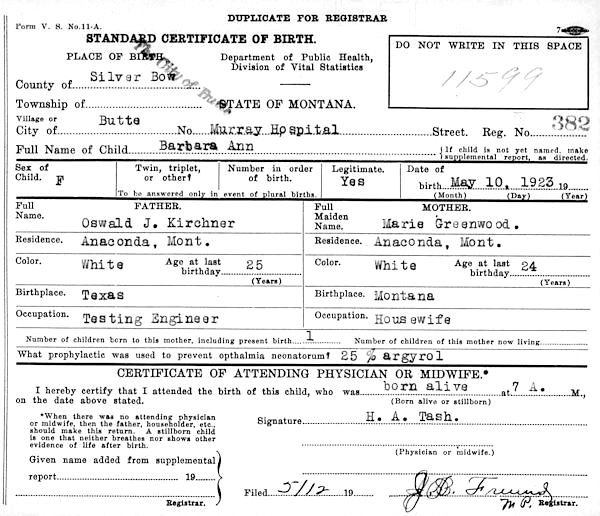 DUPLICATE FOR REGISTRAR
Form V. S. No. 11-A.
STANDARD CERTIFICATE OF BIRTH.
PLACE OF BIRTH.
Department of Public Health,
Division of Vital Statistics
DO NOT WRITE IN THIS SPACE
11599
County of Silver Bow
The City of Butte
Township of
STATE OF MONTANA.
Village or
City of Butte No. Murray Hospital Street. Reg. No. 382
Full Name of Child. Barbara Ann { If child is not yet named, make supplemental report, as directed.
Sex of Child. F
Twin, triplet, or other?
Number in order of birth.
To be answered only in event of plural births.
Legitimate. Yes
Date of birth May 10, 1923 19
(Month) (Day) (Year)
FATHER.
Full Name. Oswald J. Kirchner
Residence. Anaconda, Mont.
Color. White Age at last birthday 25
(Years)
Birthplace. Texas
Occupation. Testing Engineer
MOTHER.
Full Maiden Name. Marie Greenwood.
Residence. Anaconda, Mont.
Color. White Age at last birthday 24
(Years)
Birthplace. Montana
Occupation. Housewife
Number of children born to this mother, including present birth 1 Number of children of this mother now living
What prophylactic was used to prevent opthalmia neonatorum? 25 % argyrol
CERTIFICATE OF ATTENDING PHYSICIAN OR MIDWIFE.*
I hereby certify that I attended the birth of this child, who was born alive at 7 A. M.,
on the date above stated. (Born alive or stillborn)
*When there was no attending physician
or midwife, then the father, householder, etc.,
should make this return. A stillborn child
is one that neither breathes nor shows other
evidence of life after birth.
Signature H. A. Tash.
(Physician or midwife.)
Given name added from supplemental
report 19
Registrar.
Filed 5/12 19 J. B. Freund
M.D. Registrar.